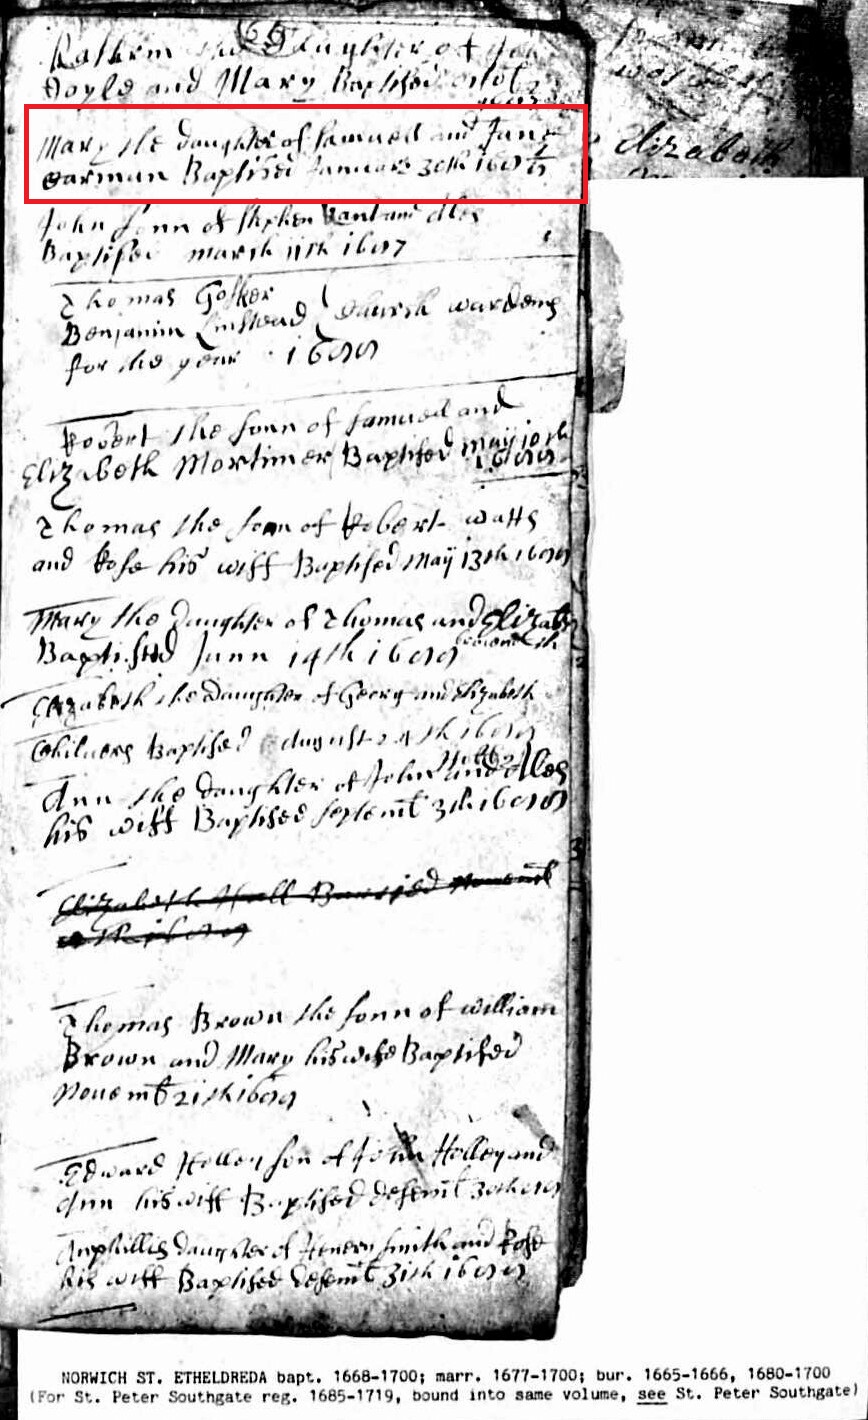 66
Daughter of
Doyle and Mary Baptised
Mary the daughter of Samuell and Jane
Carman Baptised January 30th
John sonn of Stephen and Ales
Baptised march 11th 1697
Thomas Gosker
Benjamin Linstead Church wardens
for the year 1699
Robert the sonn of Samuell and
Elizabeth Mortimer Baptised May 10th
1699
Thomas the sonn of Robert watts
and Rose his wiff Baptised May 13th 1699
Mary the Daughter of Thomas and Elizab
Baptised Junn 14th 1699
Elizabeth the Daughter of Georg and Elizabeth
Chilvers Baptised August 1699
Ann the daughter of John and Ales
his wiff Baptised Septemb 3th 1699
Elizabeth Hall Burried Novemb
Thomas Brown the sonn of william
Brown and Mary his wife Baptised
Novemb 21th 1699
Edward Holley son of John Holley and
Ann his wiff Baptised Desemb 30th 1699
daughter of Henery Smith and Rose
his wiff Baptised Desemb 31th 1699
Elizabeth
NORWICH ST. ETHELDREDA bapt. 1668-1700; marr. 1677-1700; bur. 1665-1666, 1680-1700
(For St. Peter Southgate reg. 1685-1719, bound into same volume, see St. Peter Southgate)